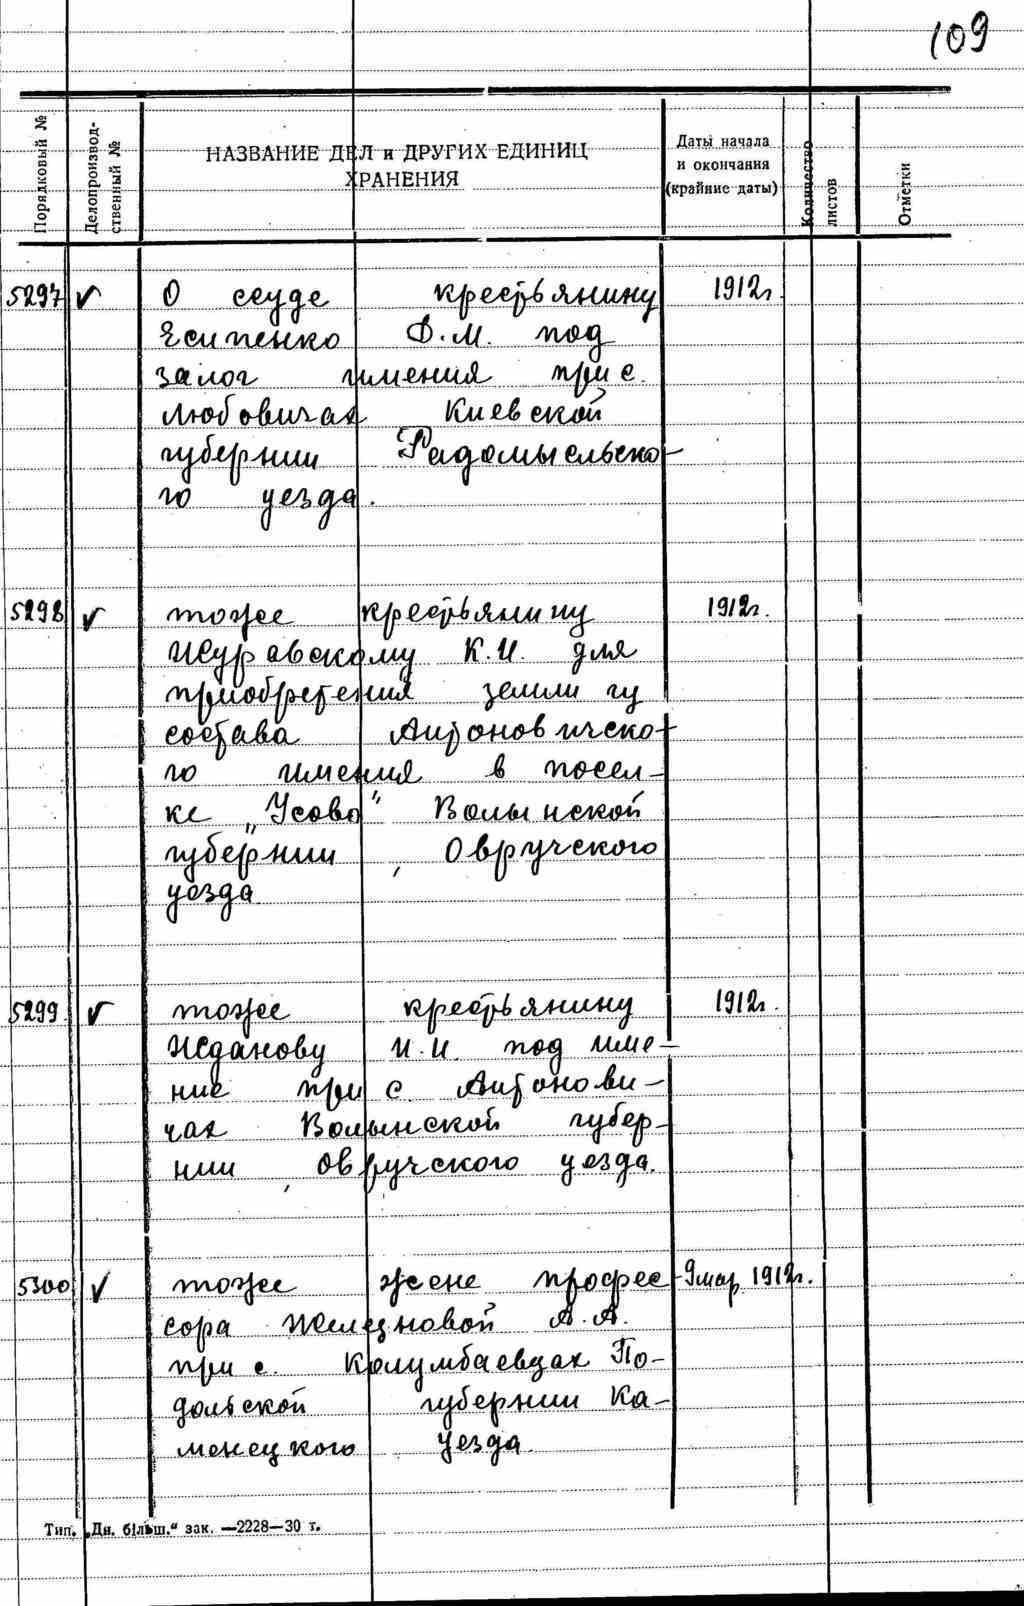 109
Порядковый №
Делопроизвод-
ственный №
НАЗВАНИЕ ДЕЛ и ДРУГИХ ЕДИНИЦ
ХРАНЕНИЯ
Даты начала
и окончания
(крайние даты)
Количество
листов
Отметки
5297 ✓ О ссуде крестьянину 1912г.
Есипенко Ф.М. под
залог имения при с.
Любовичах Киевской
губернии Радомысльско-
го уезда.
5298 ✓ тоже крестьянину 1912г.
Журавскому К.И. для
приобретения земли из
состава Антоновическо-
го имения в посел-
ке „Усово" Волынской
губернии, Овручского
уезда
5299 ✓ тоже крестьянину 1912г.
Жданову И.И. под име-
ние при с. Антонови-
чах Волынской губер-
нии, Овручского уезда.
5300 ✓ тоже жене профес- 9мар. 1912г.
сора Железновой А.А.
при с. Колумбаевцах По-
дольской губернии Ка-
менецкого уезда.
Тип. „Дн. більш." зак. —2228—30 т.